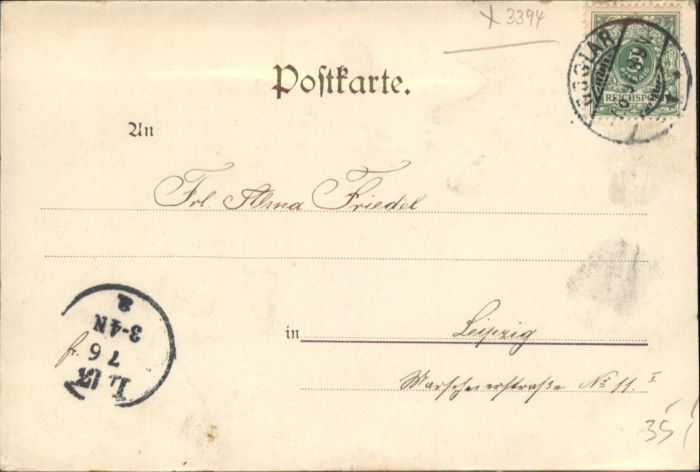 x 3394
Postkarte.
GOSLAR
REICHSPOST
An
Frl Alma Friedel
in Leipzig
Marschnerstraße No 11 I
3-4 N
7 6
35